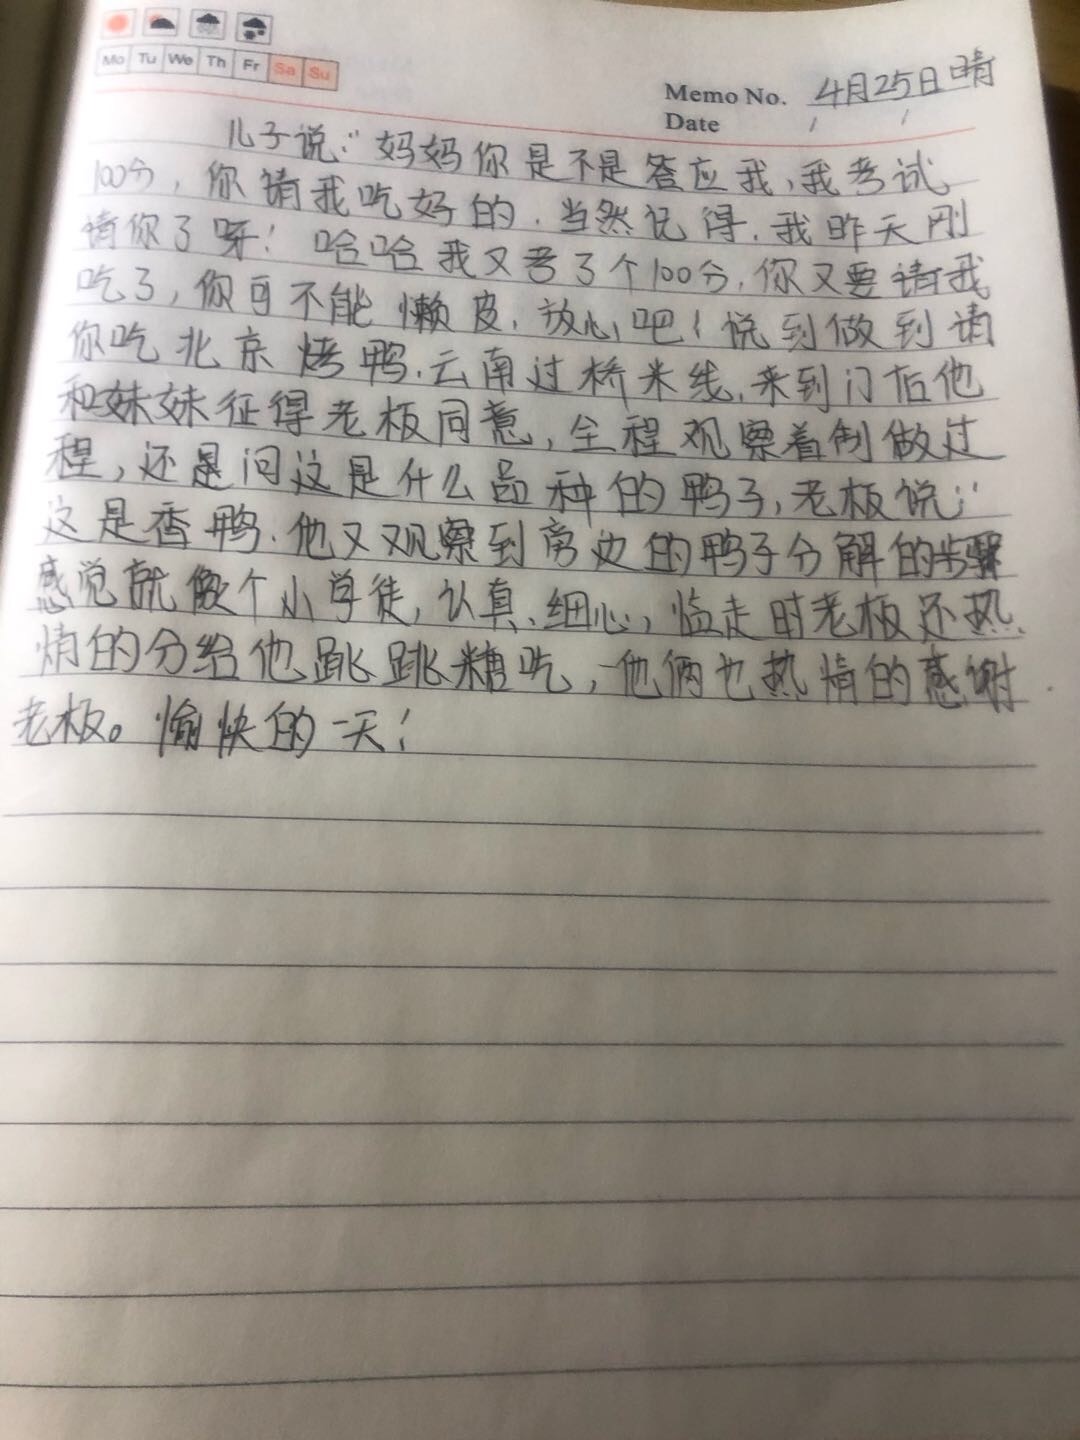 Mo Tu We Th Fr Sa Su
Memo No. 4月25日晴
Date / /
儿子说:"妈妈你是不是答应我,我考试
100分,你请我吃好的.当然记得.我昨天刚
请你了呀!哈哈我又考了个100分,你又要请我
吃了,你可不能懒皮.放心吧!说到做到请
你吃北京烤鸭.云南过桥米线.来到门店他
和妹妹征得老板同意,全程观察着制做过
程,还是问这是什么品种的鸭子,老板说:"
这是香鸭.他又观察到旁边的鸭子分解的步骤
感觉就像个小学徒,认真、细心,临走时老板还热
情的分给他跳跳糖吃,他俩也热情的感谢
老板。愉快的一天!